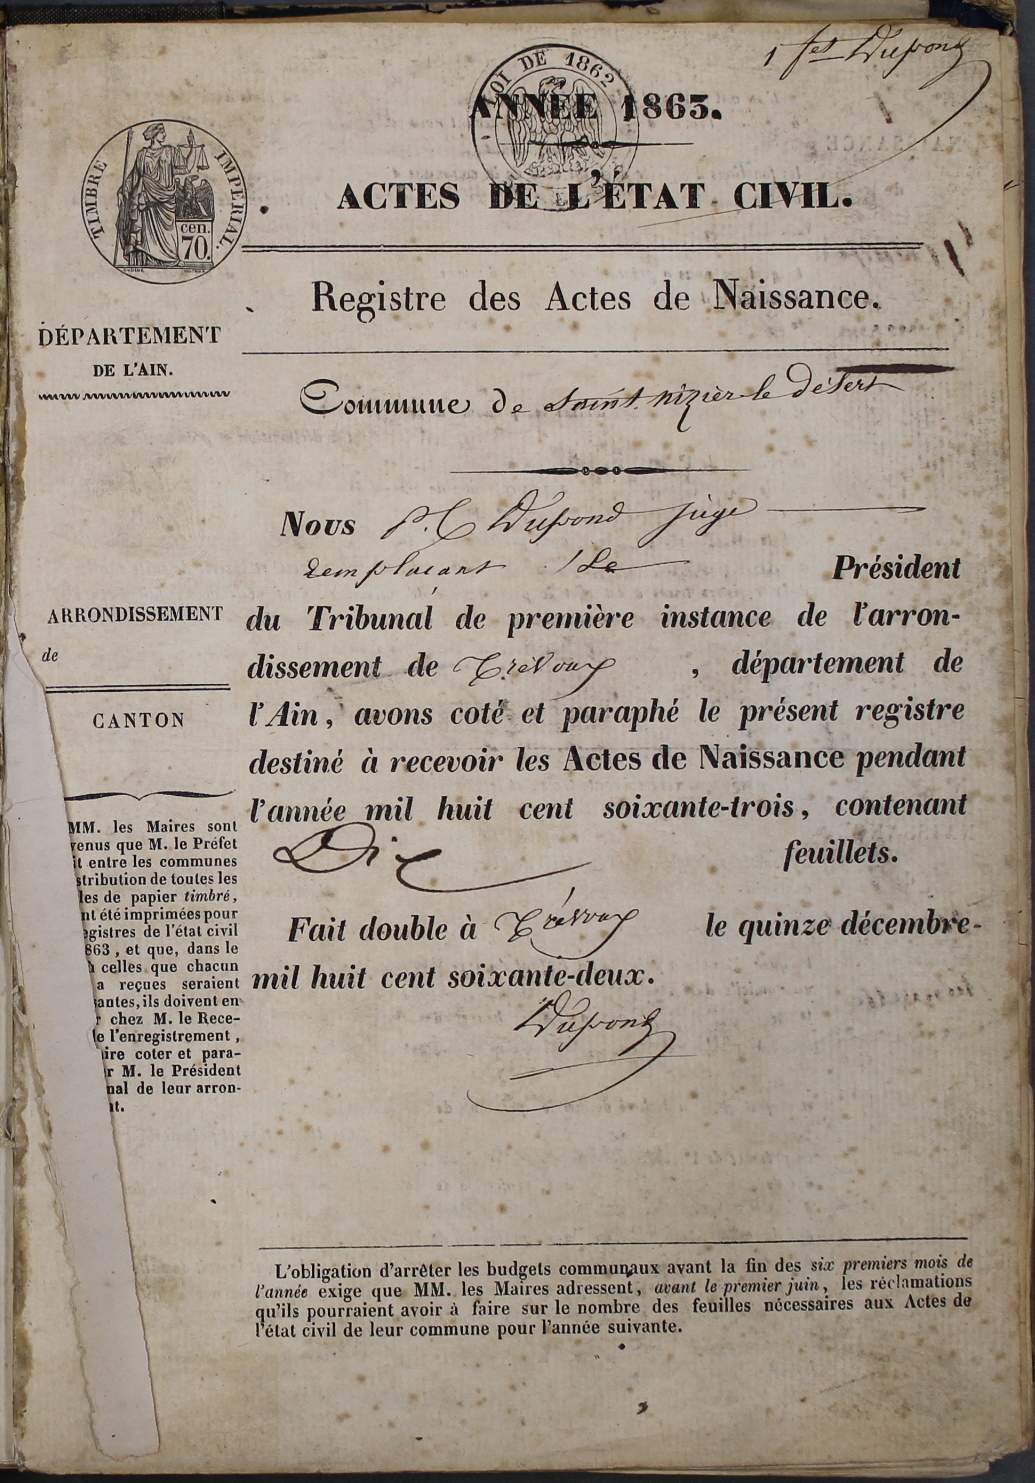 1 fet Dupond
LOI DE 1862
ANNÉE 1863.
TIMBRE IMPÉRIAL.
cen.
70.
ACTES DE L'ÉTAT CIVIL.
Registre des Actes de Naissance.
DÉPARTEMENT
DE L'AIN.
Commune de Saint nizier le Désert
Nous P. C Dupond juge
remplacant le Président
ARRONDISSEMENT
de
CANTON
du Tribunal de première instance de l'arron-
dissement de Trévoux, département de
l'Ain, avons coté et paraphé le présent registre
destiné à recevoir les Actes de Naissance pendant
l'année mil huit cent soixante-trois, contenant
Dix feuillets.
Fait double à Trévoux le quinze décembre-
mil huit cent soixante-deux.
Dupond
MM. les Maires sont
venus que M. le Préfet
it entre les communes
stribution de toutes les
les de papier timbré,
nt été imprimées pour
egistres de l'état civil
863, et que, dans le
celles que chacun
a reçues seraient
antes, ils doivent en
r chez M. le Rece-
e l'enregistrement,
ire coter et para-
r M. le Président
nal de leur arron-
nt.
L'obligation d'arrêter les budgets communaux avant la fin des six premiers mois de
l'année exige que MM. les Maires adressent, avant le premier juin, les réclamations
qu'ils pourraient avoir à faire sur le nombre des feuilles nécessaires aux Actes de
l'état civil de leur commune pour l'année suivante.